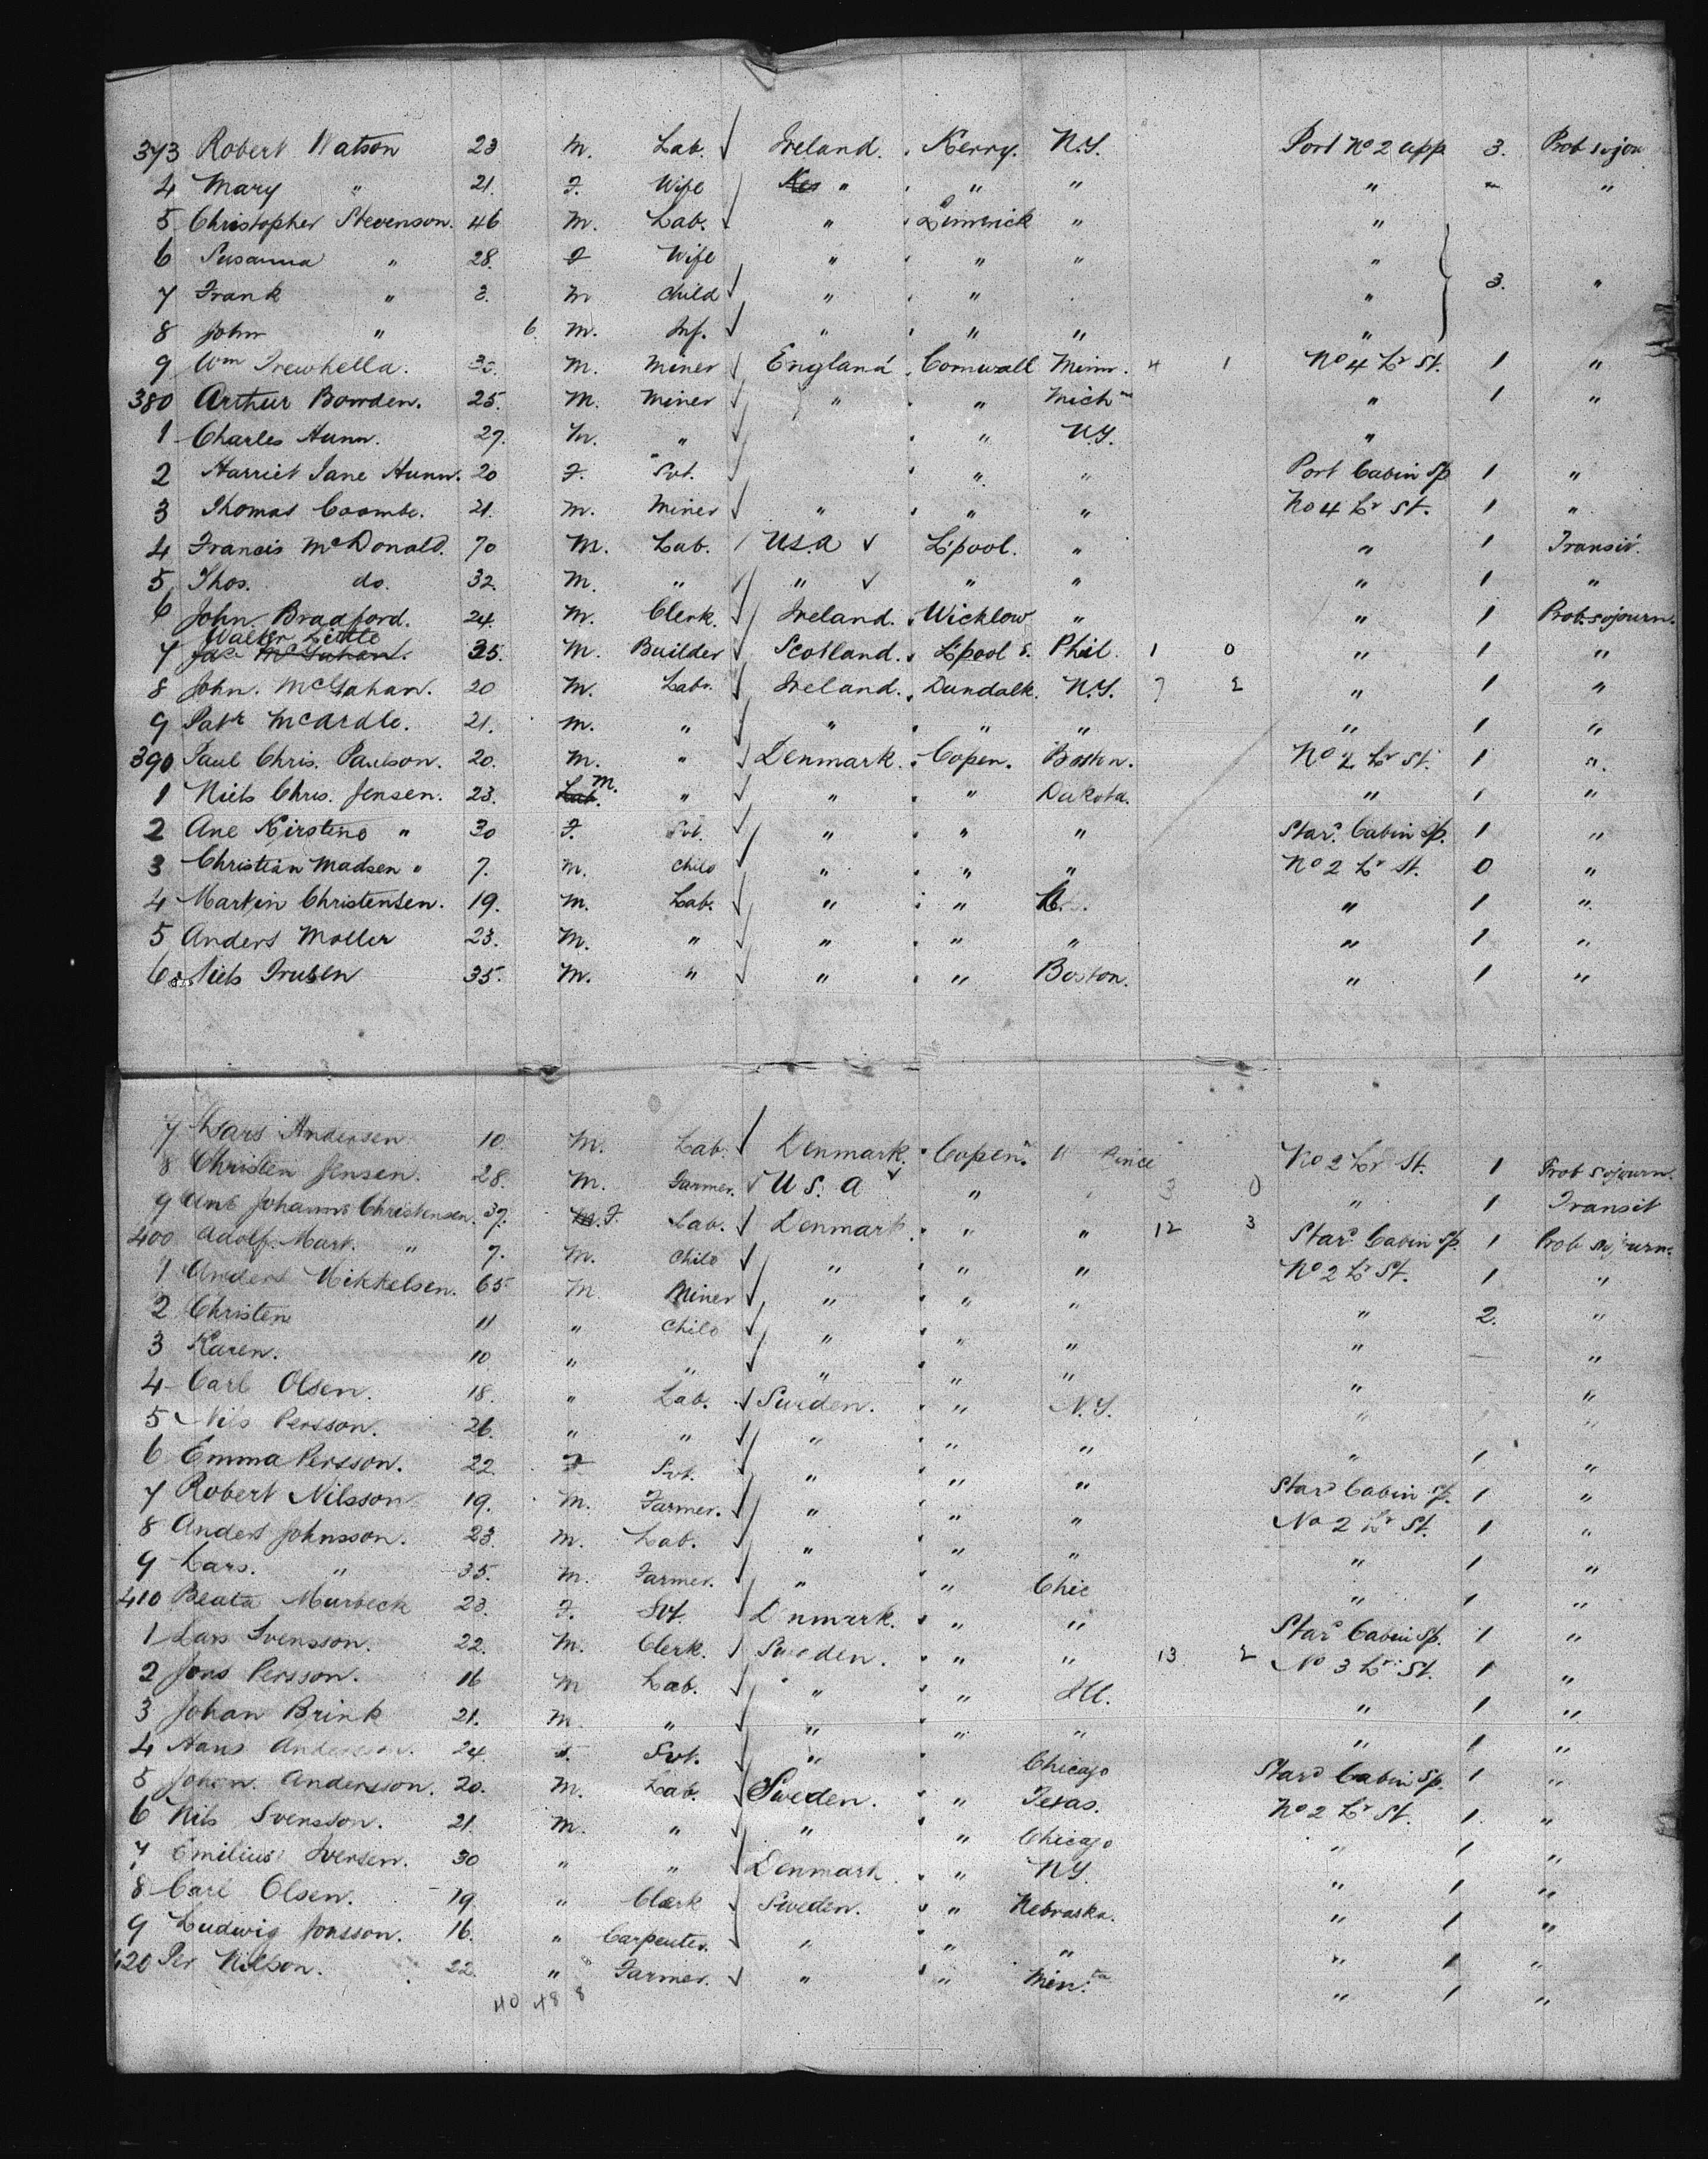 373 Robert Watson 23 M. Lab. Ireland. Kerry. N.Y. Port No 2 app 3. Prob sojou
4 Mary " 21. F. Wife " " " " "
5 Christopher Stevenson. 46 M. Lab. " Limerick " "
6 Susanna " 28. F Wife " " " "
7 Frank " 3. M Child " " " 3. "
8 John " 6. M. Inf. " " " "
9 Wm Trewhella. M. Miner England Cornwall Minn. 4 1 No 4 Lr St. 1 "
380 Arthur Bowden. 25. M. Miner " " Mich " 1 "
1 Charles Hunn. 27. M. " " N.Y. "
2 Harriet Jane Hunn. 20 F. Svt. " " Port Cabin Sp 1 "
3 Thomas Coombe. 21. M. Miner " " " No 4 Lr St. 1 "
4 Francis McDonald. 70 M. Lab. U.S.A L'pool. " " 1 Transit.
5 Thos. do. 32. M. " " " " " 1 "
6 John Bradford. 24. M. Clerk. Ireland. Wicklow " " 1 Prob. sojourn.
Walter Little
7 35. M. Builder Scotland. L'pool Phil. 1 0 " 1 "
8 John. McGahan. 20 M. Labr. Ireland. Dundalk. N.Y. 7 2 " 1 "
9 Patk McArdle. 21. M. " " " " " 1 "
390 Paul Chris. Paulson. 20. M. " Denmark. Copen. Boston. No 2 Lr St. 1 "
1 Niels Chris. Jensen. 23. Lab. M. " " " Dakota. " 1 "
2 Ane Kirstine " 30 F. Svt. " " " Stard Cabin Sp. 1 "
3 Christian Madsen " 7. M. Child " " " No 2 Lr St. 0 "
4 Martin Christensen. 19. M. Lab. " " " 1 "
5 Anders Moller 23. M. " " " " " 1 "
6 Niels Trulsen 35. M. " " " Boston. " 1 "
7 Lars Andersen 10. M. Lab. Denmark. Copen. " No 2 Lr St. 1 Prob sojourn.
8 Christen Jensen. 28. M. Farmer. U.S.A " 3 0 " 1 Transit
9 Johanne Christensen. 37. M. F. Lab. Denmark. " " 12 3 Stard Cabin Sp. 1 Prob sojourn.
400 Adolf. Mart. " 7. M. Child " " " No 2 Lr St. 1 "
1 Anders Mikkelsen. 65. M. Miner " " " " 2. "
2 Christen 11 " Child " " " " "
3 Karen. 10 " " " " " " "
4 Carl Olsen. 18. " Lab. Sweden. " N.Y. " "
5 Nils Persson. 26. " " " " " " 1 "
6 Emma Persson. 22. F Svt. " " " Stard Cabin Sp. 1 "
7 Robert Nilsson 19. M. Farmer. " " " No 2 Lr St. 1 "
8 Anders Johnsson. 23. M. Lab. " " " " 1 "
9 Lars. " 35. M. Farmer. " " Chic " 1 "
410 Beata Murbeck 23. F. Svt. Denmark. " " Stard Cabin Sp. 1 "
1 Lars Svensson. 22. M. Clerk. Sweden. " " 13 2 No 3 Lr St. 1 "
2 Jons Persson. 16 M Lab. " " Ill. " 1 "
3 Johan Brink 21. M. " " " " " 1 "
4 Hans 24. F. Svt. " Chicago Stard Cabin Sp. 1 "
5 Johan. Andersson. 20. M. Lab. Sweden. " Texas. No 2 Lr St. 1 "
6 Nils Svensson. 21. M. " " " Chicago " 1 "
7 Emilius Iversen. 30 " " Denmark " N.Y. " 1 "
8 Carl Olsen. 19. " Clerk Sweden. " Nebraska. " 1 "
9 Ludwig Jonsson. 16. " Carpenter. " " " " 1 "
420 Per Nilson. 22. " Farmer. " " Minta. " 1 "
40 48 8